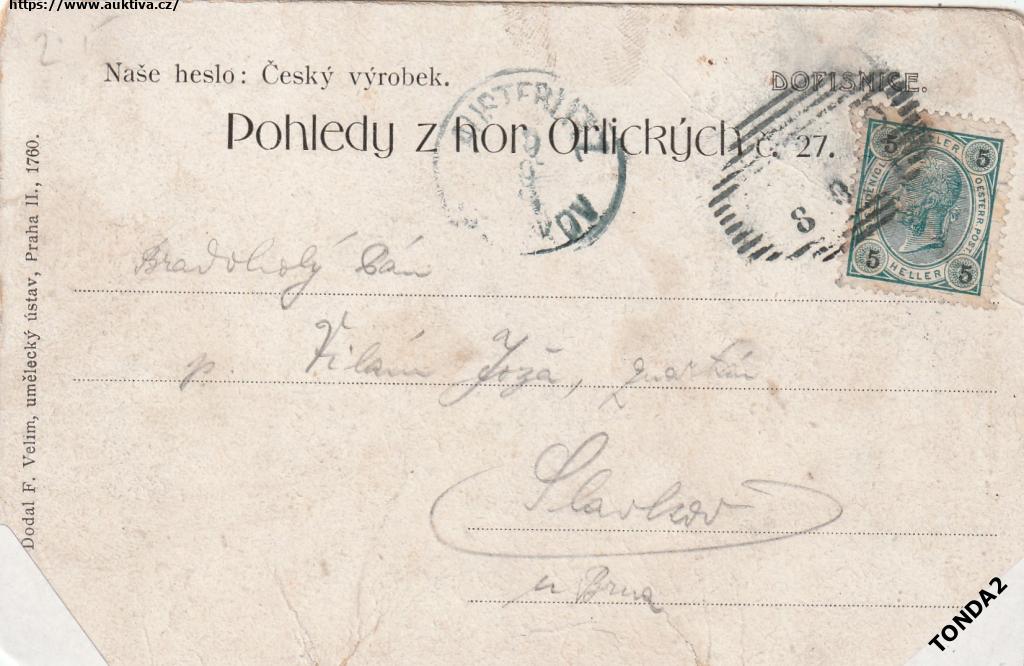 https://www.auktiva.cz/
Naše heslo: Český výrobek.
DOPISNICE.
Pohledy z hor Orlických č. 27.
5 HELLER 5
OESTERR. POST
5 HELLER 5
8
Pán
p. Vilém Joža,
Slavkov
u Brna
Dodal F. Velim, umělecký ústav, Praha II., 1760.
TONDA2